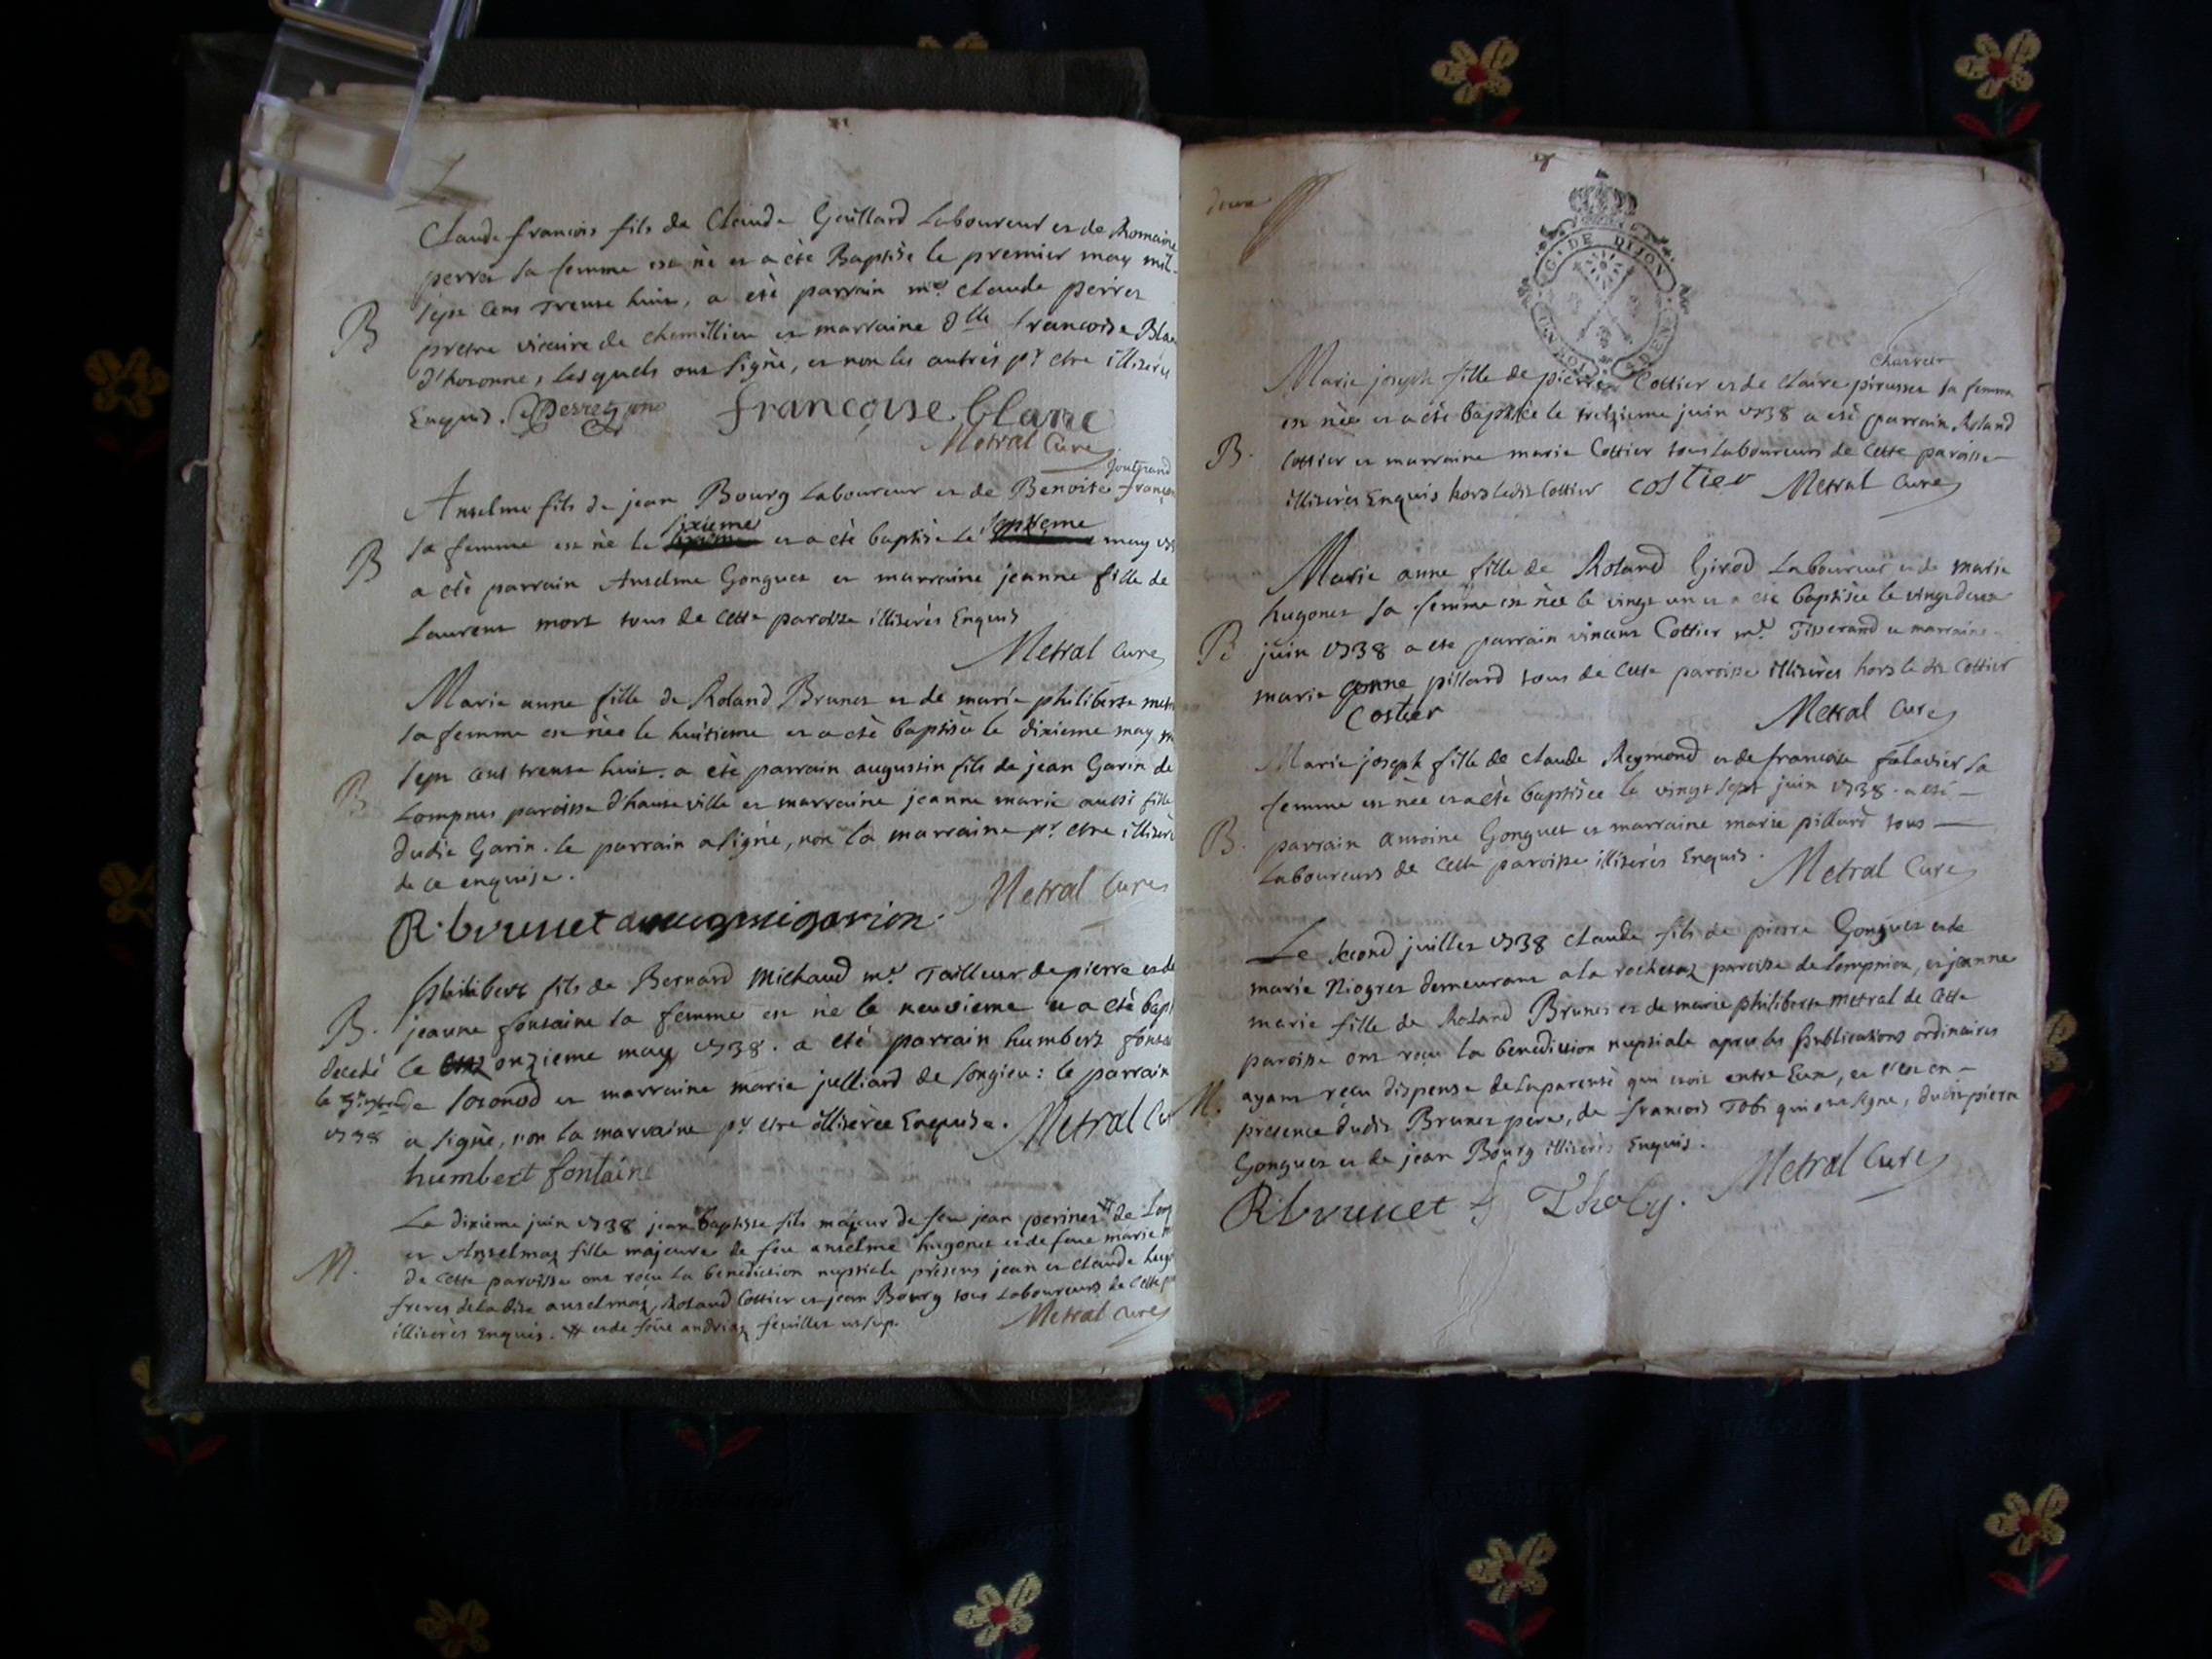 Claude francois fils de Claude Gaillard Laboureur et de Romaine
perret sa femme est né et a été Baptisé le premier may mil
sept cens trente huit, a été parrain mre Claude perret
B
pretre vicaire de chemillieu et marraine dlle francoise Blanc
d'hotonne, lesquels ont signé, et non les autres pr etre illiterés
Enquis. Perret françoise blanc
Metral Curé
Joutgrand
Anselme fils de jean Bourg Laboureur et de Benoite françoi
sixieme septieme
B
sa femme est né le et a été baptisé le may
a été parrain Anselme Gonguet et marraine jeanne fille de
Laurent mort tous de cette paroisse illiterés Enquis
Metral Curé
Marie anne fille de Roland Brunet et de marie philiberte met
sa femme est née le huitieme et a été baptisée le dixieme may m
B
sept cens trente huit. a été parrain augustin fils de jean Garin de
Lompnes paroisse d'hauteville et marraine jeanne marie aussi fille
dudit Garin. le parrain a signé, non la marraine pr etre illiteré
de ce enquise.
Metral Curé
R. brunet
philibert fils de Bernard Michaud mre Tailleur de pierre et de
B. jeanne fontaine sa femme est né le neuvieme et a été bapt
decedé le onzieme may 1738. a été parrain humbert fontai
le de sotonod et marraine marie julliard de songieu: le parrain
1738 a signé, non la marraine pr etre illiterée Enquise. Metral Cu
humbert fontaine
Le dixieme juin 1738 jean baptiste fils majeur de feu jean perinet # de Lomp
et Anselmaz fille majeure de feu anselme hugonet et de feue marie
M.
de cette paroisse ont reçu la benediction nuptiale présens jean et claude hugo
freres de ladite anselmaz, Roland Cottier et jean Bourg tous Laboureurs de cette p
illiterés enquis. # et de feüe andriaz feuillet ut sup.
Metral Curé
deux
G. DE DIJON
Charveir
Marie joseph fille de pierre Cottier et de Claire pirusset sa femme
est née et a été baptisée le treizieme juin 1738 a été parrain Roland
B. Cottier et marraine marie Cottier tous Laboureurs de cette paroisse
illiterés Enquis hors ledit Cottier costier Metral Curé
Marie anne fille de Roland Girod Laboureur et de marie
hugonet sa femme est née le vingt un et a été baptisée le vingt deux
B
juin 1738 a été parrain vincent Cottier mre Tisserand et marraine
marie pillard tous de cette paroisse illiterés hors le dit Cottier
Costier Metral Curé
Marie joseph fille de claude Reymond et de francoise falavier sa
femme est née et a été baptisée le vingt sept juin 1738. a été
B. parrain Antoine Gonguet et marraine marie pillard tous
Laboureurs de cette paroisse illiterés Enquis.
Metral Curé
Le second juillet 1738 Claude fils de pierre Gonguet et de
marie Niogret demeurant a la rochetaz paroisse de lompnieu, et jeanne
marie fille de Roland Brunet et de marie philiberte metral de cette
paroisse ont reçu la benediction nuptiale apres les publications ordinaires
M. ayant reçu dispense de la parenté qui etoit entre Eux, et c'est en
presence dudit Brunet pere, de francois Tobi qui ont signé, dudit pierre
Gonguet et de jean Bourg illiterés Enquis.
R brunet f Thoby. Metral Curé